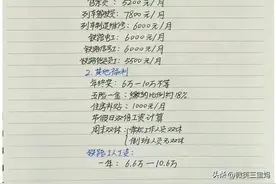 5200元/月
7800元/月
6000元/月
铁路电工 6000元/月
铁路信号工 6000元/月
5500元/月
2. 其他福利
年终奖: 6万-10万不等
五险一金: 缴纳比例约18%
住房补贴: 1000元/月
节假日双倍工资计算
周末双休
双休
铁路工人工资:
一年: 6.6万-10.6万
头条 @微笑三宝妈